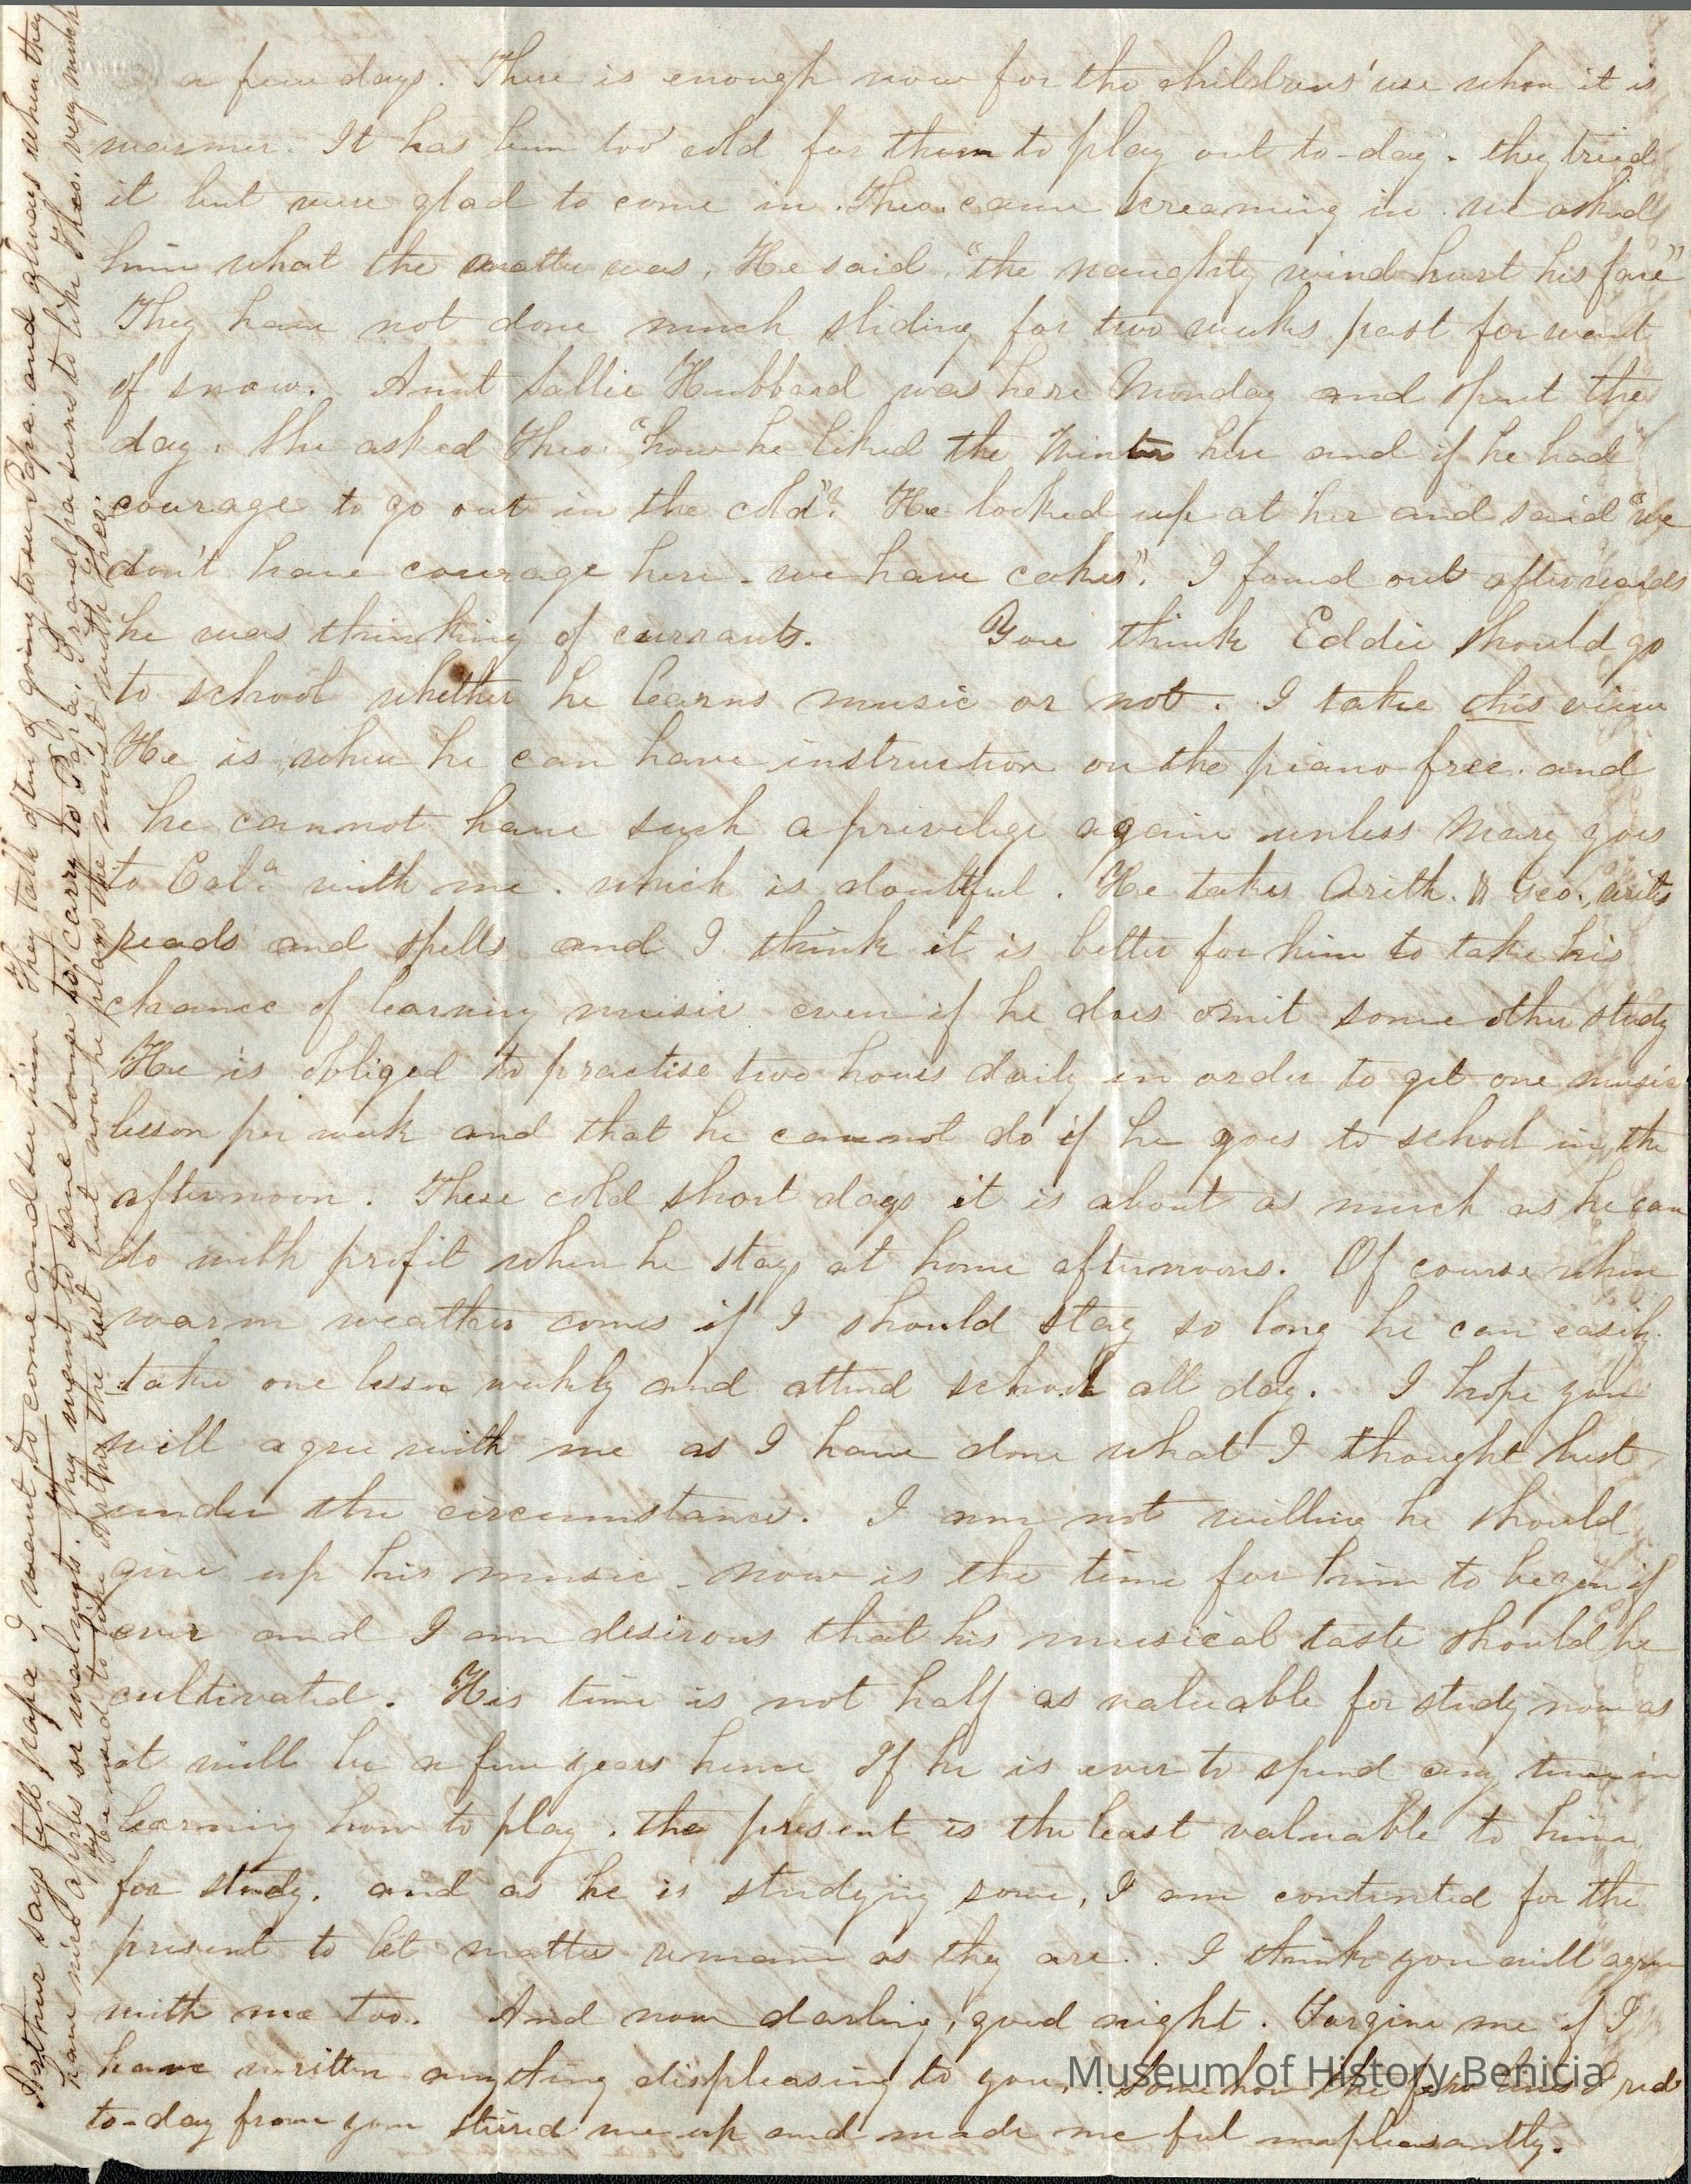 a few days. There is enough now for the childrens' use when it is
warmer. It has been too cold for them to play out to-day. they tried
it but were glad to come in. Theo. came screaming in. we asked
him what the matter was, He said, "the naughty wind hurt his face"
They have not done much sliding for two weeks past for want
of snow. Aunt Sallie Hubbard was here Monday and spent the
day. She asked Theo. "how he liked the Winter here and if he had
courage to go out in the cold"? He looked up at her and said "we
don't have courage here - we have cakes". I found out afterwards
he was thinking of currants. You think Eddie should go
to school whether he learns music or not. I take this view
He is where he can have instruction on the piano free. and
he cannot have such a privelige again unless Mary goes
to Cala. with me. which is doubtful. He takes Arith. & Geo., writes
reads and spells and I think it is better for him to take his
chance of learning music even if he does omit some other study
He is obliged to practise two hours daily in order to get one music
lesson per week and that he cannot do if he goes to school in the
afternoon. These cold short days it is about as much as he can
do with profit when he stays at home afternoons. Of course when
warm weather comes if I should stay so long he can easily
take one lesson weekly and attend school all day. I hope you
will agree with me as I have done what I thought best
under the circumstances. I am not willing he should
give up his music - now is the time for him to begin if
ever and I am desirous that his musical taste should be
cultivated. His time is not half as valuable for study now as
it will be a few years hence If he is ever to spend any time in
learning how to play. the present is the least valuable to him
for study. and as he is studying some, I am contented for the
present to let matters remain as they are. I think you will agree
with me too. And now darling, good night. Forgive me if I
have written anything displeasing to you. Somehow the few lines I recd
to-day from you stirred me up and made me feel unpleasantly.
Arthur says tell papa I want to come and see him They talk often of going to see Papa. and always when they
have nice apples or walnuts. they want to save some to carry to Papa. Grandpa seems to like Theo. very much
He used to like Arthur the best but now he plays the most with Theo.
Museum of History Benicia